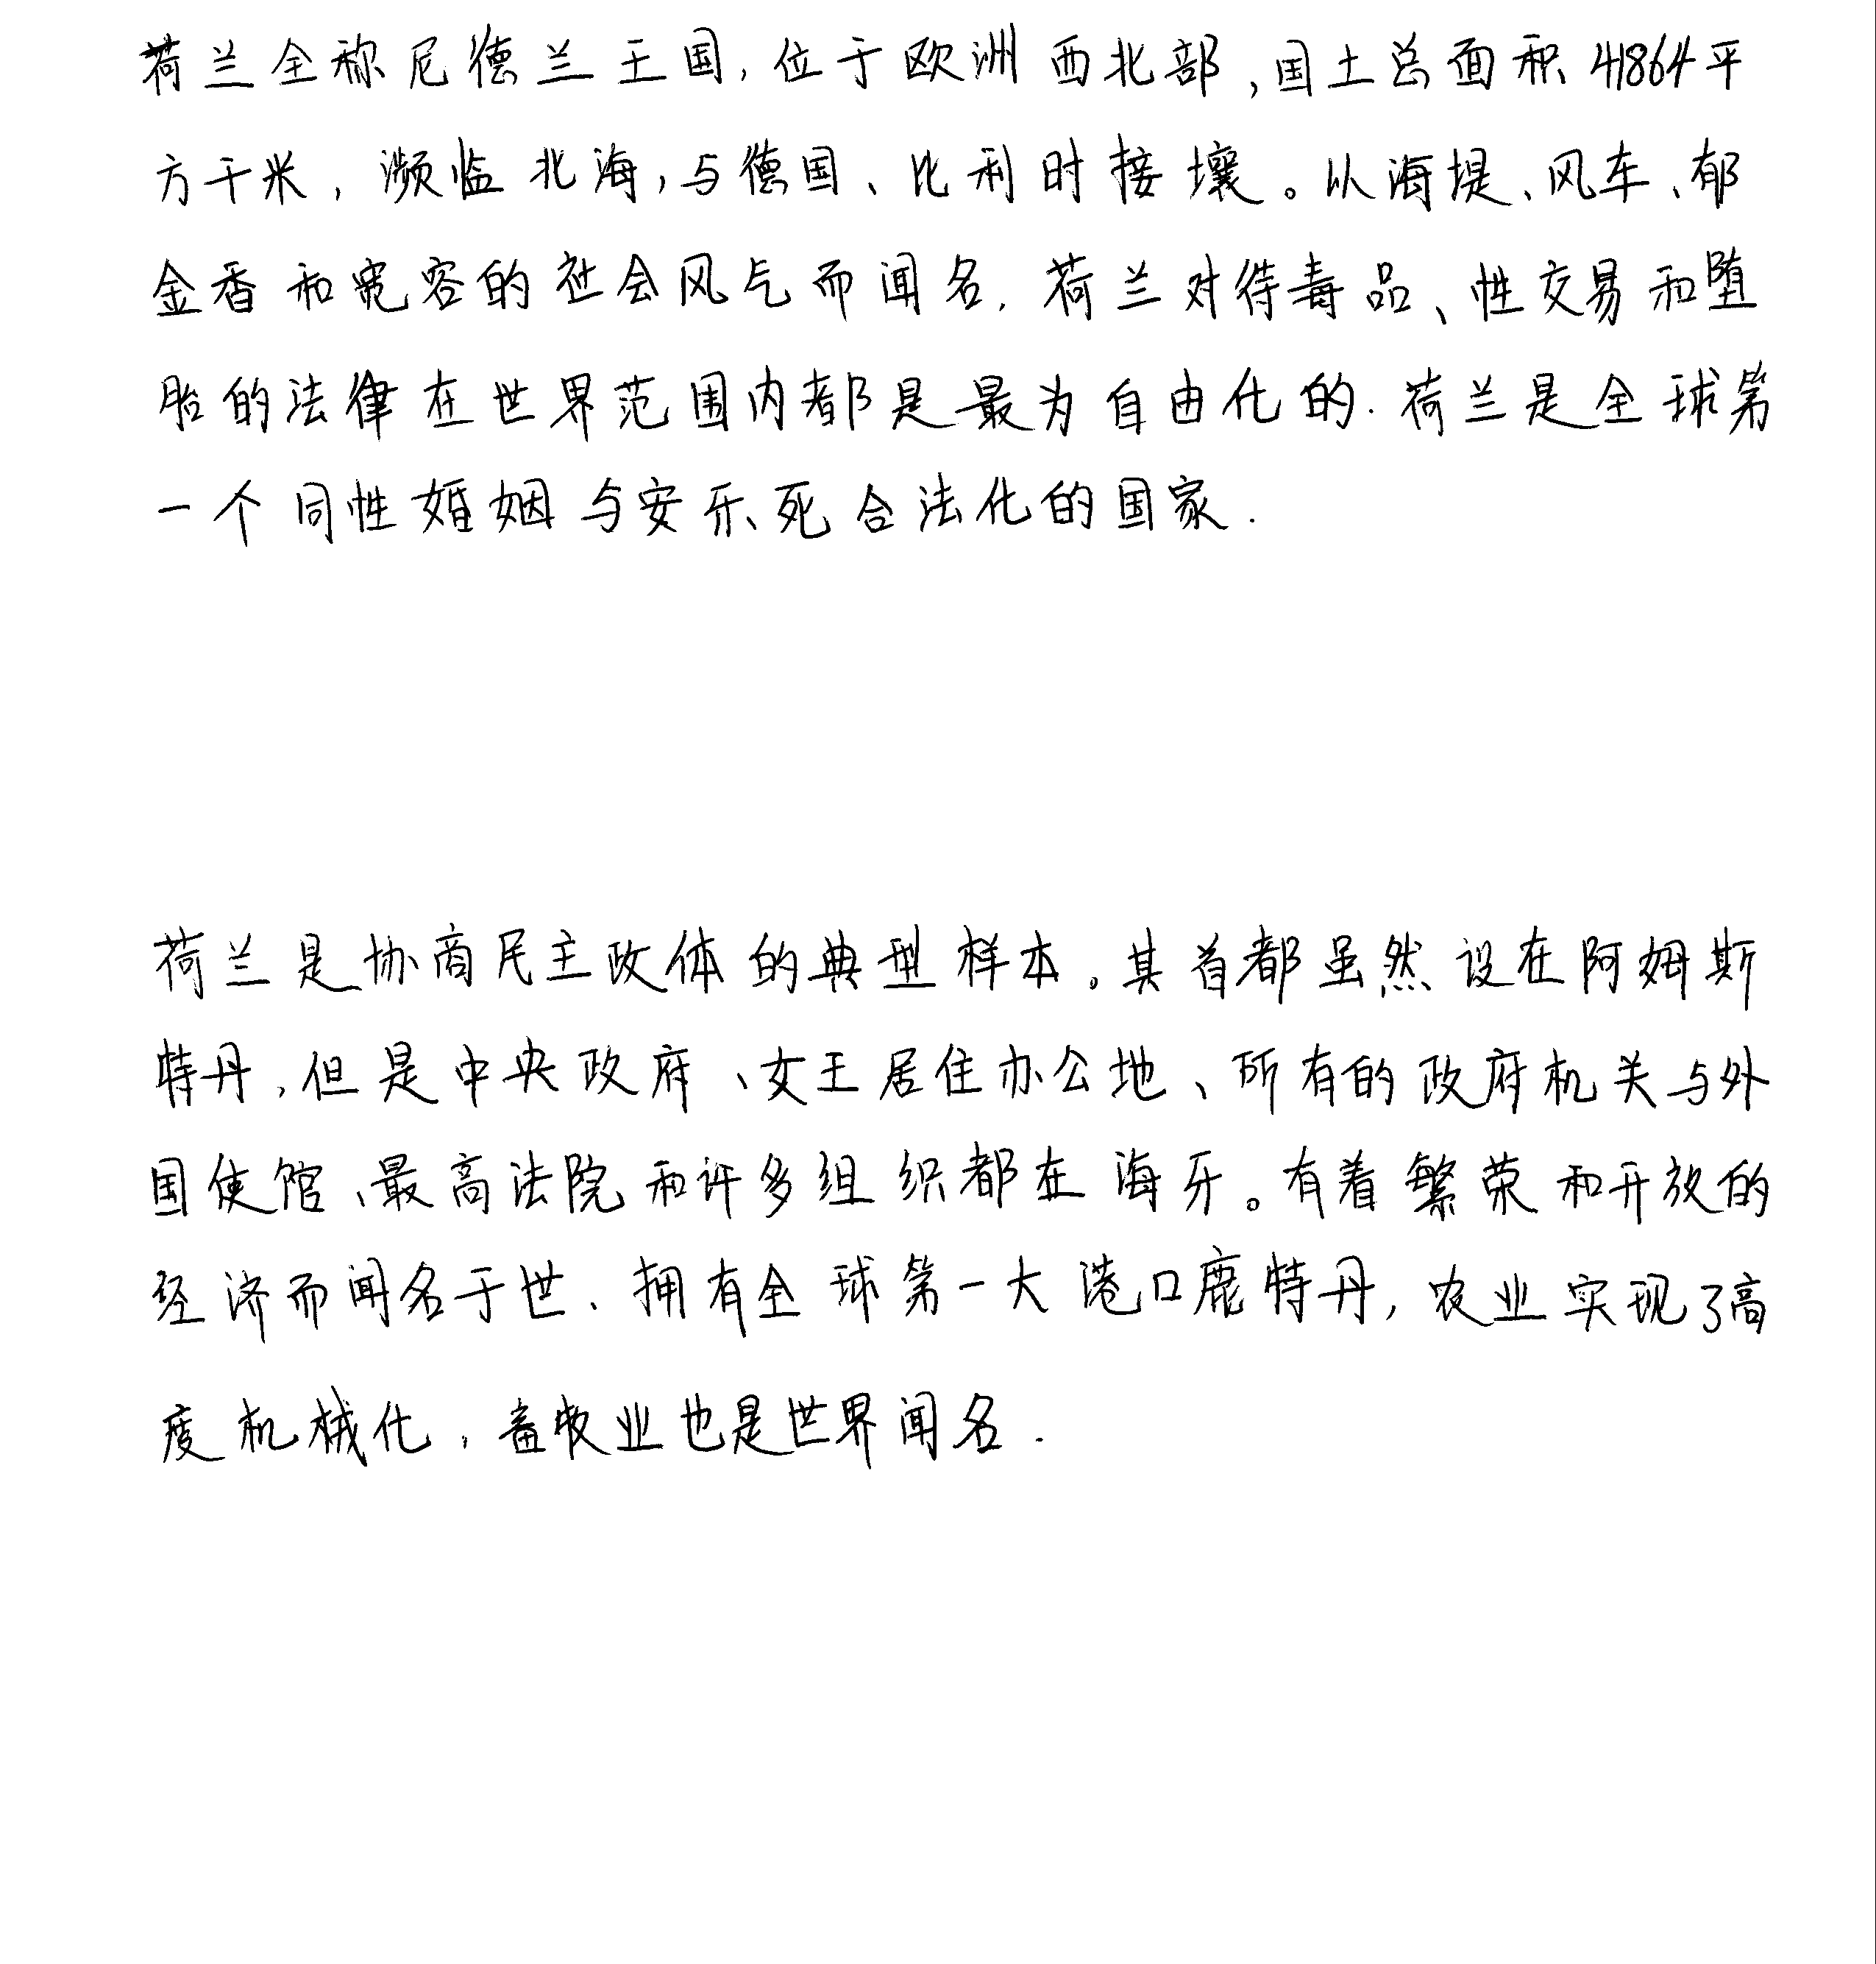 荷兰全称尼德兰王国,位于欧洲西北部,国土总面积41864平
方千米,濒临北海,与德国、比利时接壤。以海堤、风车、郁
金香和宽容的社会风气而闻名.荷兰对待毒品、性交易和堕
胎的法律在世界范围内都是最为自由化的.荷兰是全球第
一个同性婚姻与安乐死合法化的国家.
荷兰是协商民主政体的典型样本。其首都虽然设在阿姆斯
特丹,但是中央政府、女王居住办公地、所有的政府机关与外
国使馆、最高法院和许多组织都在海牙。有着繁荣和开放的
经济而闻名于世、拥有全球第一大港口鹿特丹,农业实现了高
度机械化,畜牧业也是世界闻名.